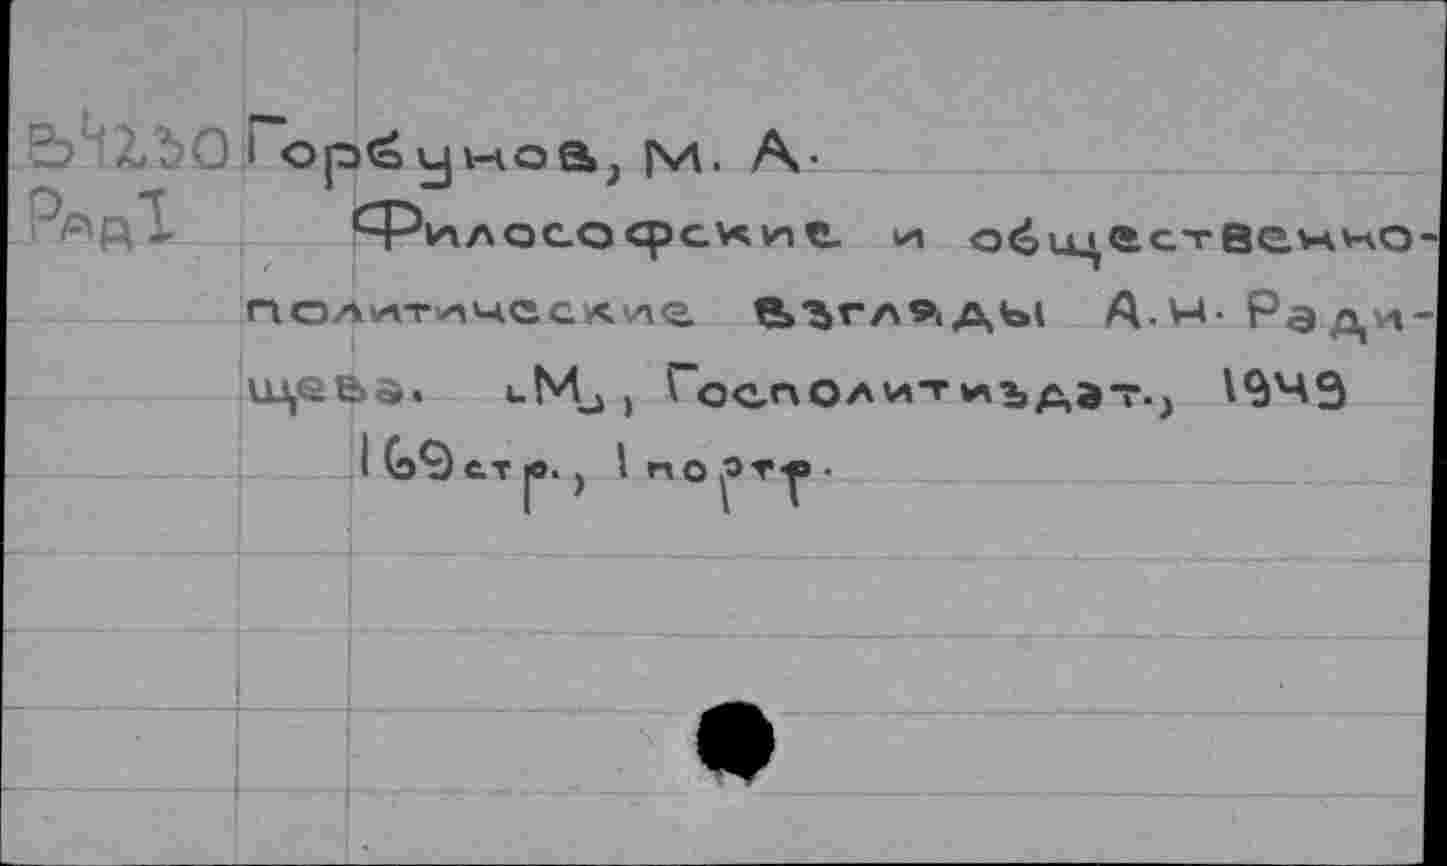 B4230 Горбунов, М. А.
Рад1 Философские и общественно-
политические взгляды А.Н. Ради-
щева. [М], Госполитиздат., 1949
169 стр., 1 портр.